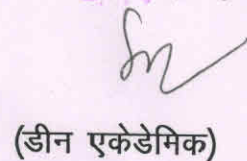 (डीन एकेडेमिक)